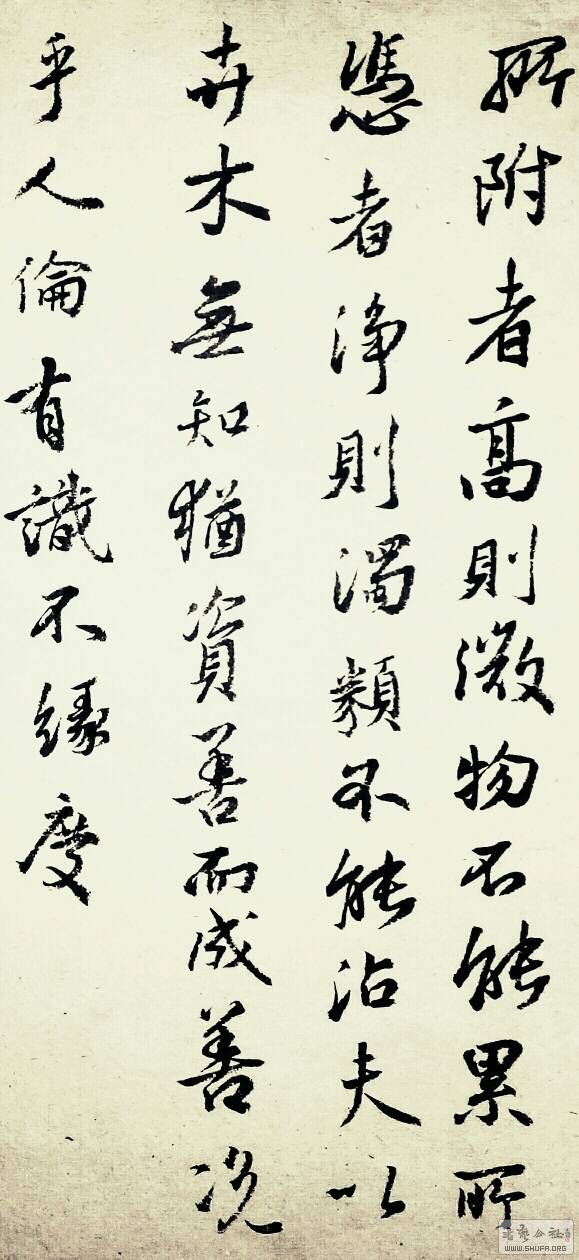 所附者高則微物不能累所
憑者淨則濁類不能沾夫以
卉木無知猶資善而成善況
乎人倫有識不緣慶
WWW.SHUFA.ORG